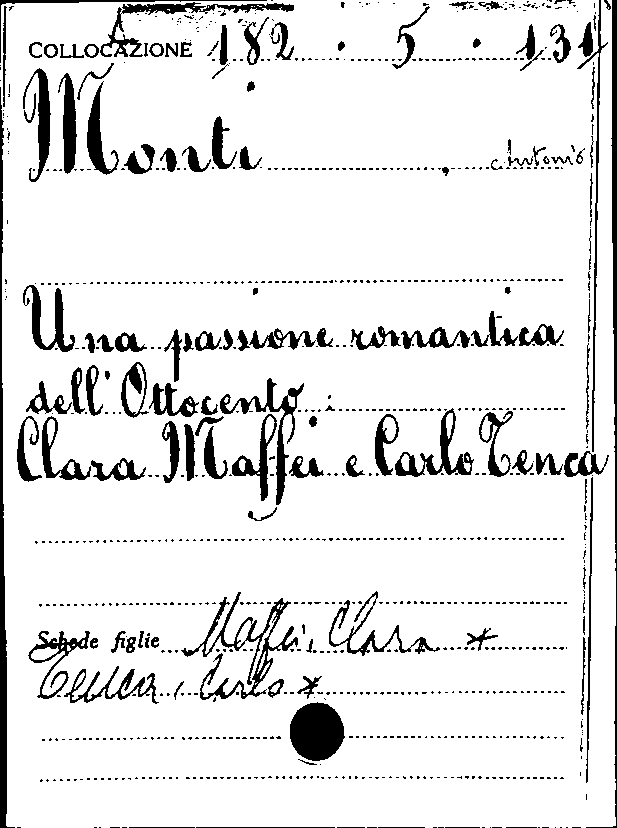 A
COLLOCAZIONE 182 . 5 . 131
Monti , Antonio
Una passione romantica
dell'Ottocento :
Clara Maffei e Carlo Tenca
Schede figlie Maffei, Clara *
Tenca, Carlo *